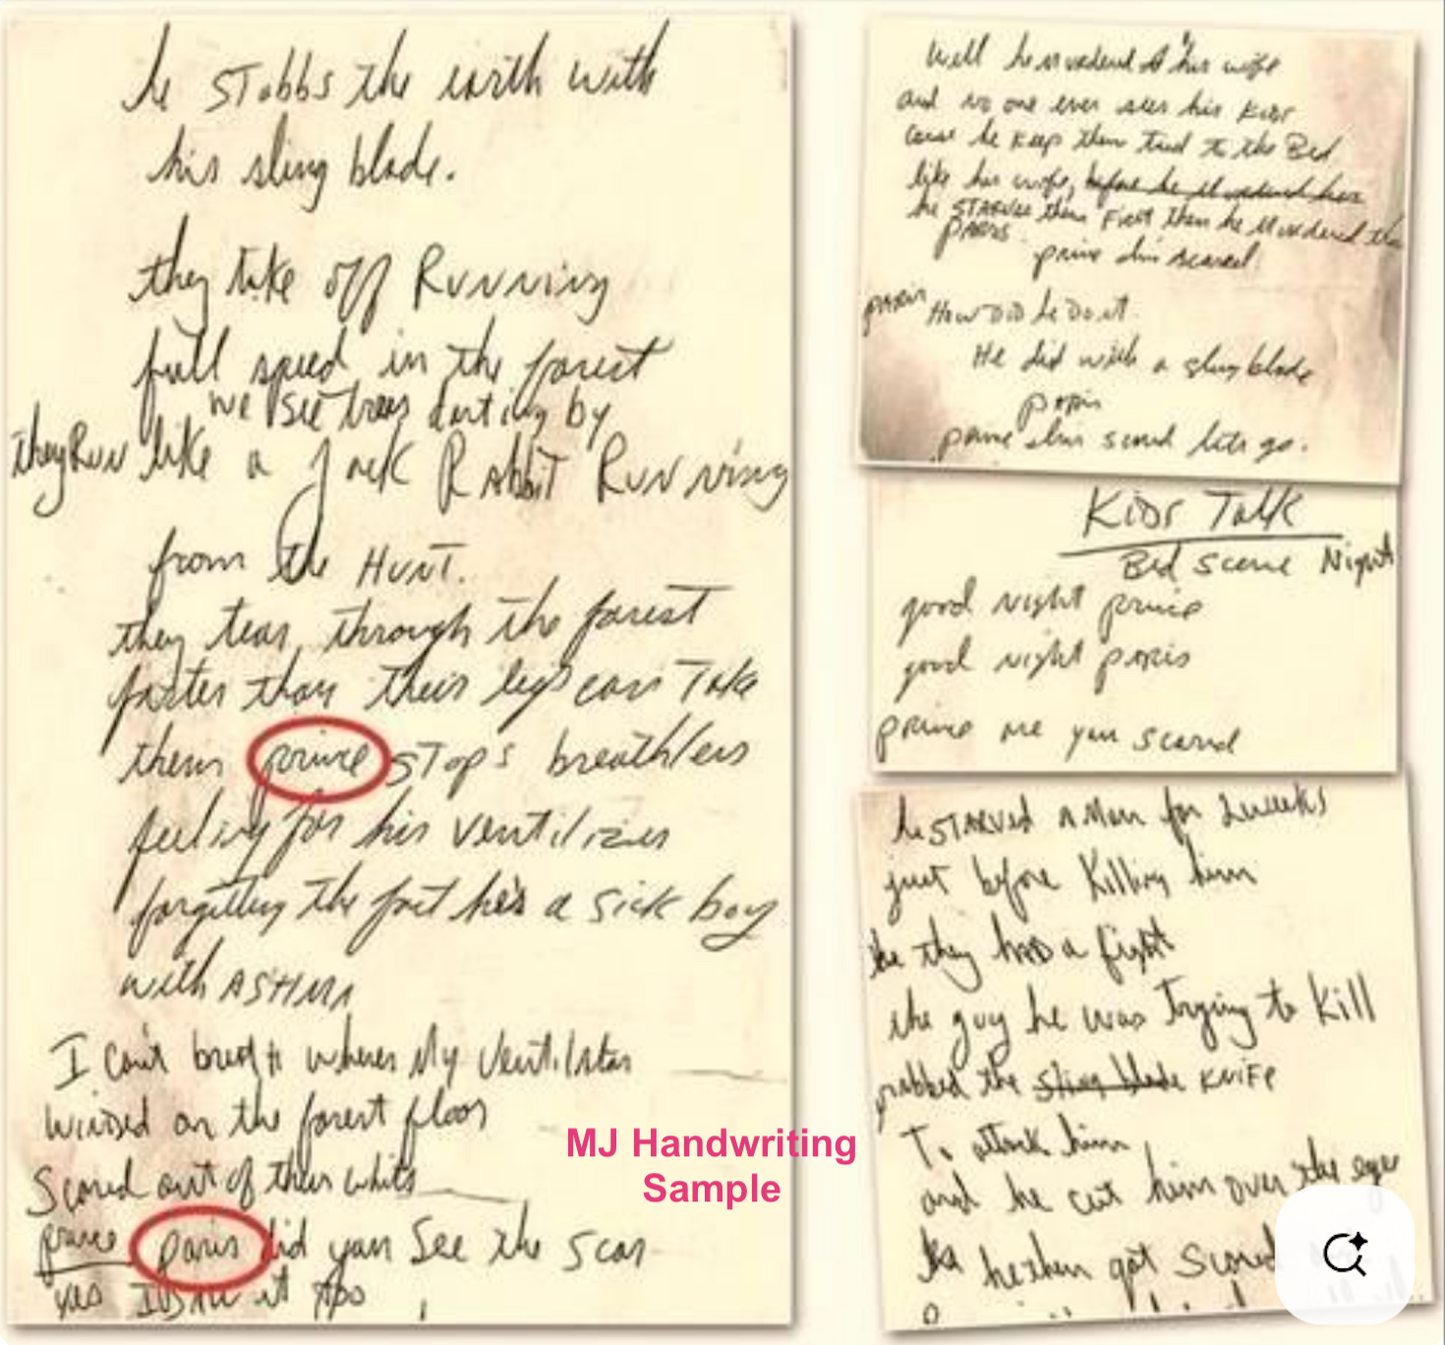 he STabbs the earth with
his sling blade.
they take off Running
full speed in the forest
we see trees darting by
they Run like a Jack Rabbit Running
from the HUNT.
they tear through the forest
faster than their legs can Take
them prince STops breathless
feeling for his ventilizer
forgetting the fact he's a sick boy
with ASHMA
I can't breath wheres My Ventilator
winded on the forest floor
Scared out of their whits
prince paris did you See the scar
yes I saw it too
MJ Handwriting
Sample
Well he murdered his wife
and no one ever sees his Kids
cause he Keep them tied to the Bed
like his wife, before he Murdered her
he STARVES them First then he Murdered the
PARIS
prince Im scared
paris How DiD he Do it
He did with a sling blade
paris
prince Im scared lets go.
Kids Talk
Bed Scene Night
good night prince
good night paris
prince are you scared
he STARVED A Man for 2 weeks
just before Killing him
they had a fight
the guy he was Trying to Kill
grabbed the sling blade KNiFe
To attack him
and he cut him over the eyes
he then got Scared